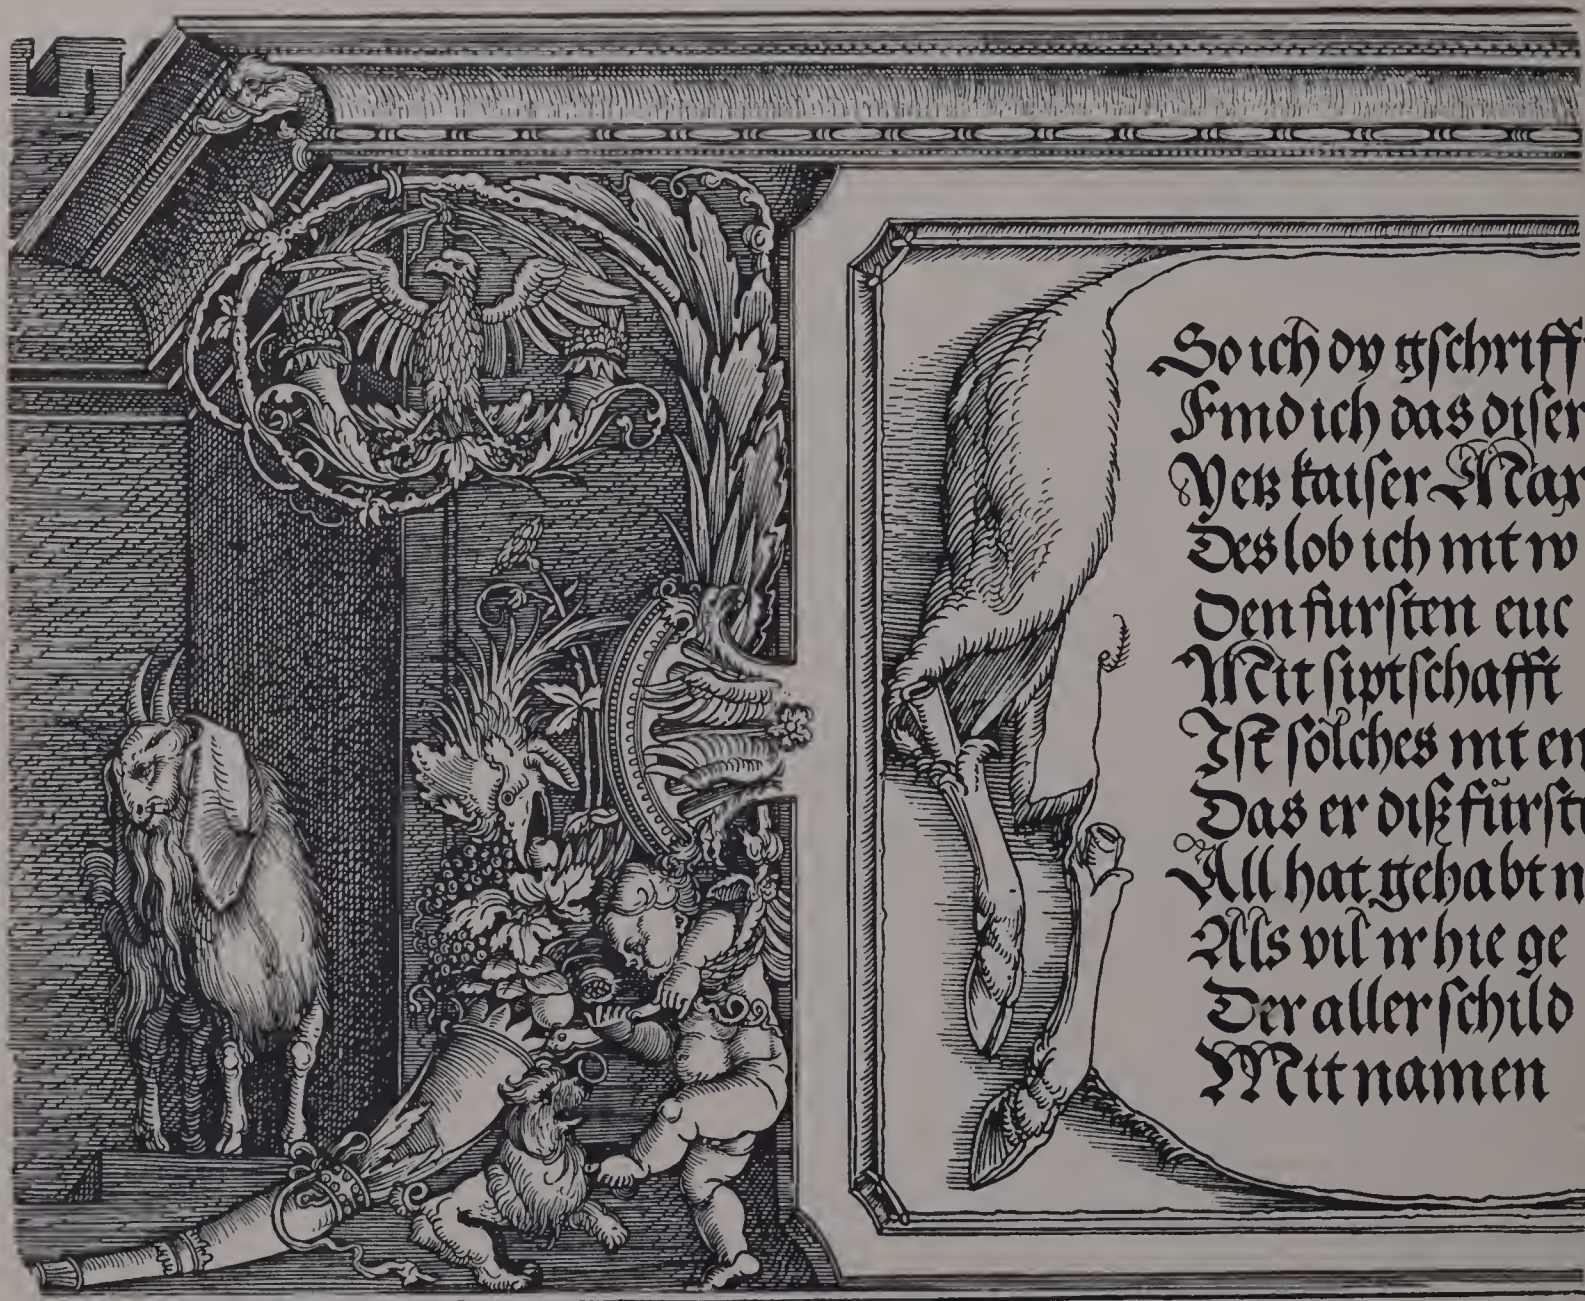 So ich dy gschrifft
Find ich das diser
Yetz kaiser Max
Des lob ich nit w
Den fursten euc
Mit siptschafft
Ist sölches nit en
Das er diß fürst
All hat gehabt n
Als vil ir hie ge
Der aller schild
Mit namen